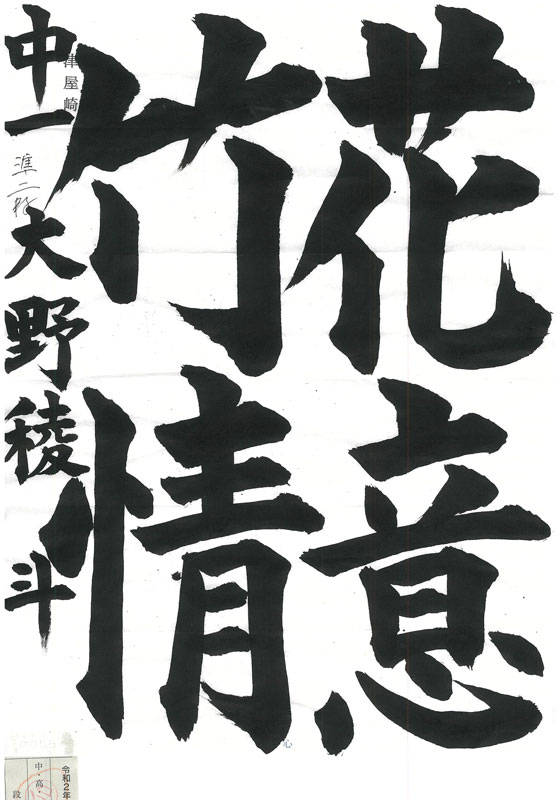 花意
竹情
津屋崎
中一 準二段 大野稜斗
心
令和2年
中・高・
段